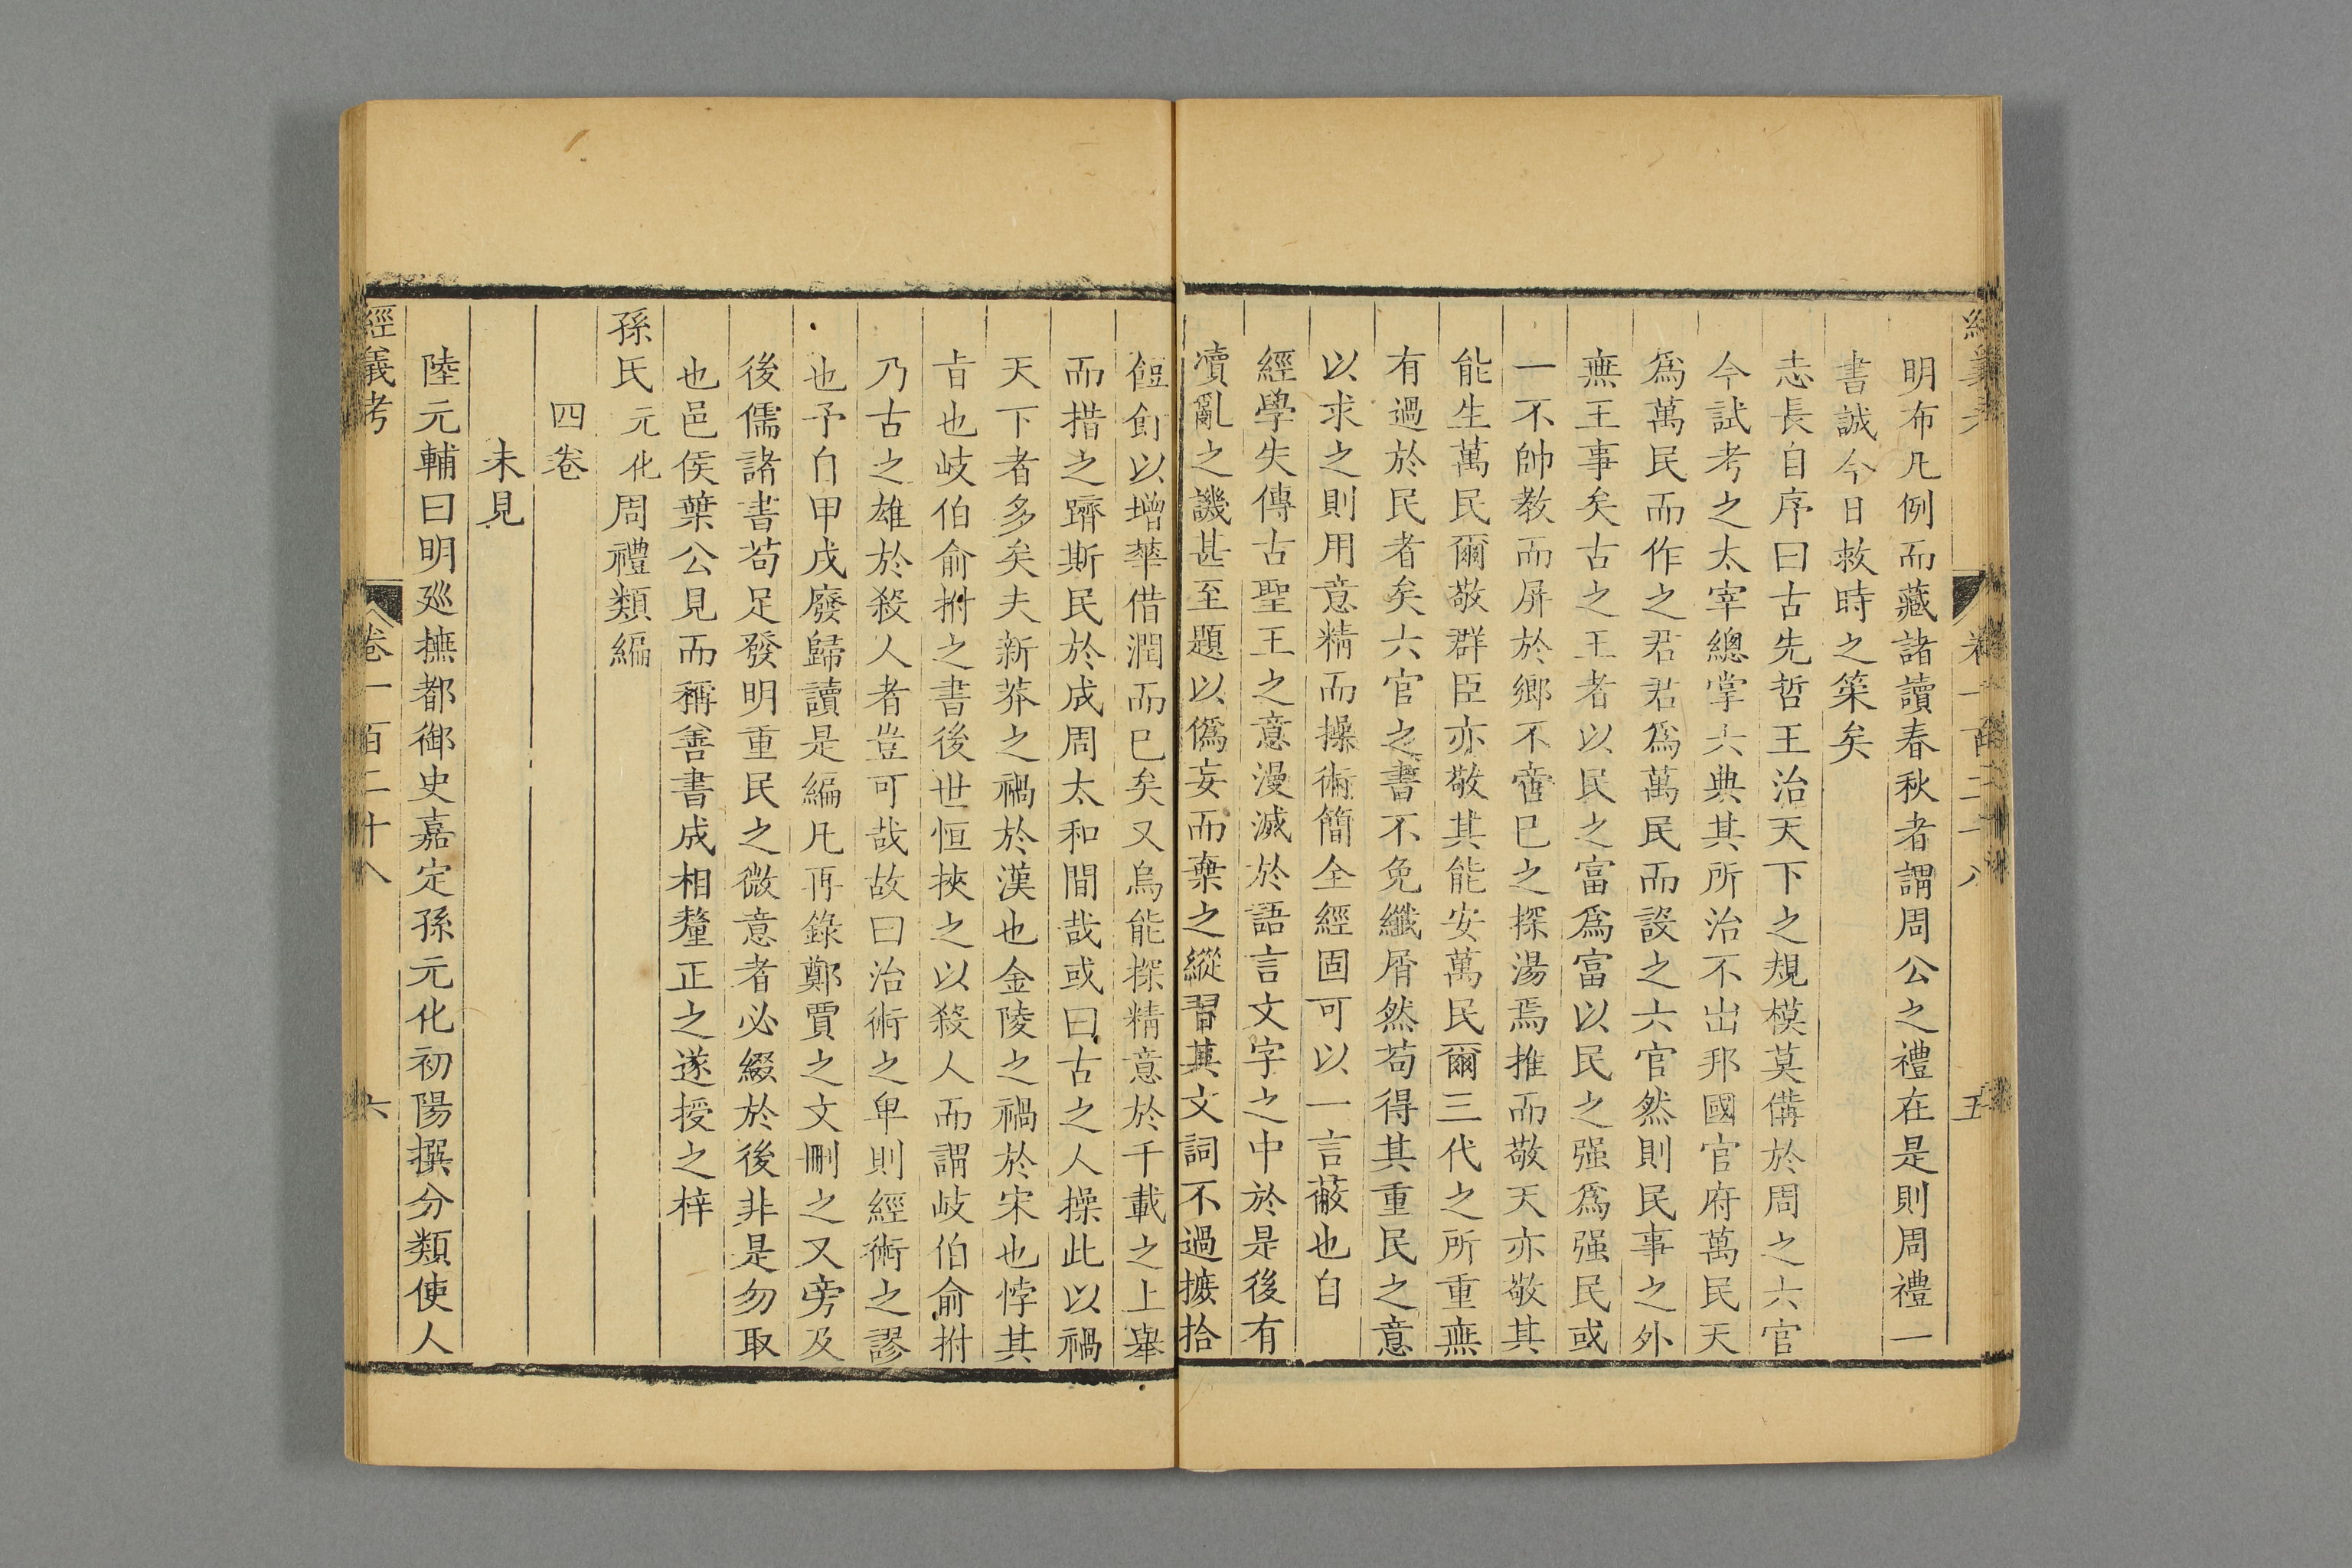 經義考 卷一百二十八 五
明布凡例而藏諸讀春秋者謂周公之禮在是則周禮一
書誠今日救時之筞矣
志長自序曰古先哲王治天下之規模莫備於周之六官
今試考之太宰總掌六典其所治不出邦國官府萬民天
爲萬民而作之君君爲萬民而設之六官然則民事之外
無王事矣古之王者以民之富爲富以民之强爲强民或
一不帥教而屏於鄉不啻已之探湯焉推而敬天亦敬其
能生萬民爾敬群臣亦敬其能安萬民爾三代之所重無
有過於民者矣六官之書不免纖屑然苟得其重民之意
以求之則用意精而操術簡全經固可以一言蔽也自
經學失傳古聖王之意漫滅於語言文字之中於是後有
凟亂之譏甚至題以僞妄而棄之縱習其文詞不過摭拾
餖飣以增華借潤而已矣又烏能探精意於千載之上舉
而措之躋斯民於成周太和間哉或曰古之人操此以禍
天下者多矣夫新莽之禍於漢也金陵之禍於宋也悖其
㫖也岐伯俞拊之書後世恒挾之以殺人而謂岐伯俞拊
乃古之雄於殺人者豈可哉故曰治術之卑則經術之謬
也予自甲戌廢歸讀是編凡再錄鄭賈之文刪之又旁及
後儒諸書苟足發明重民之微意者必綴於後非是勿取
也邑侯葉公見而稱善書成相釐正之遂授之梓
孫氏元化周禮類編
四卷
未見
陸元輔曰明廵撫都御史嘉定孫元化初陽撰分類使人
經義考 卷一百二十八 六